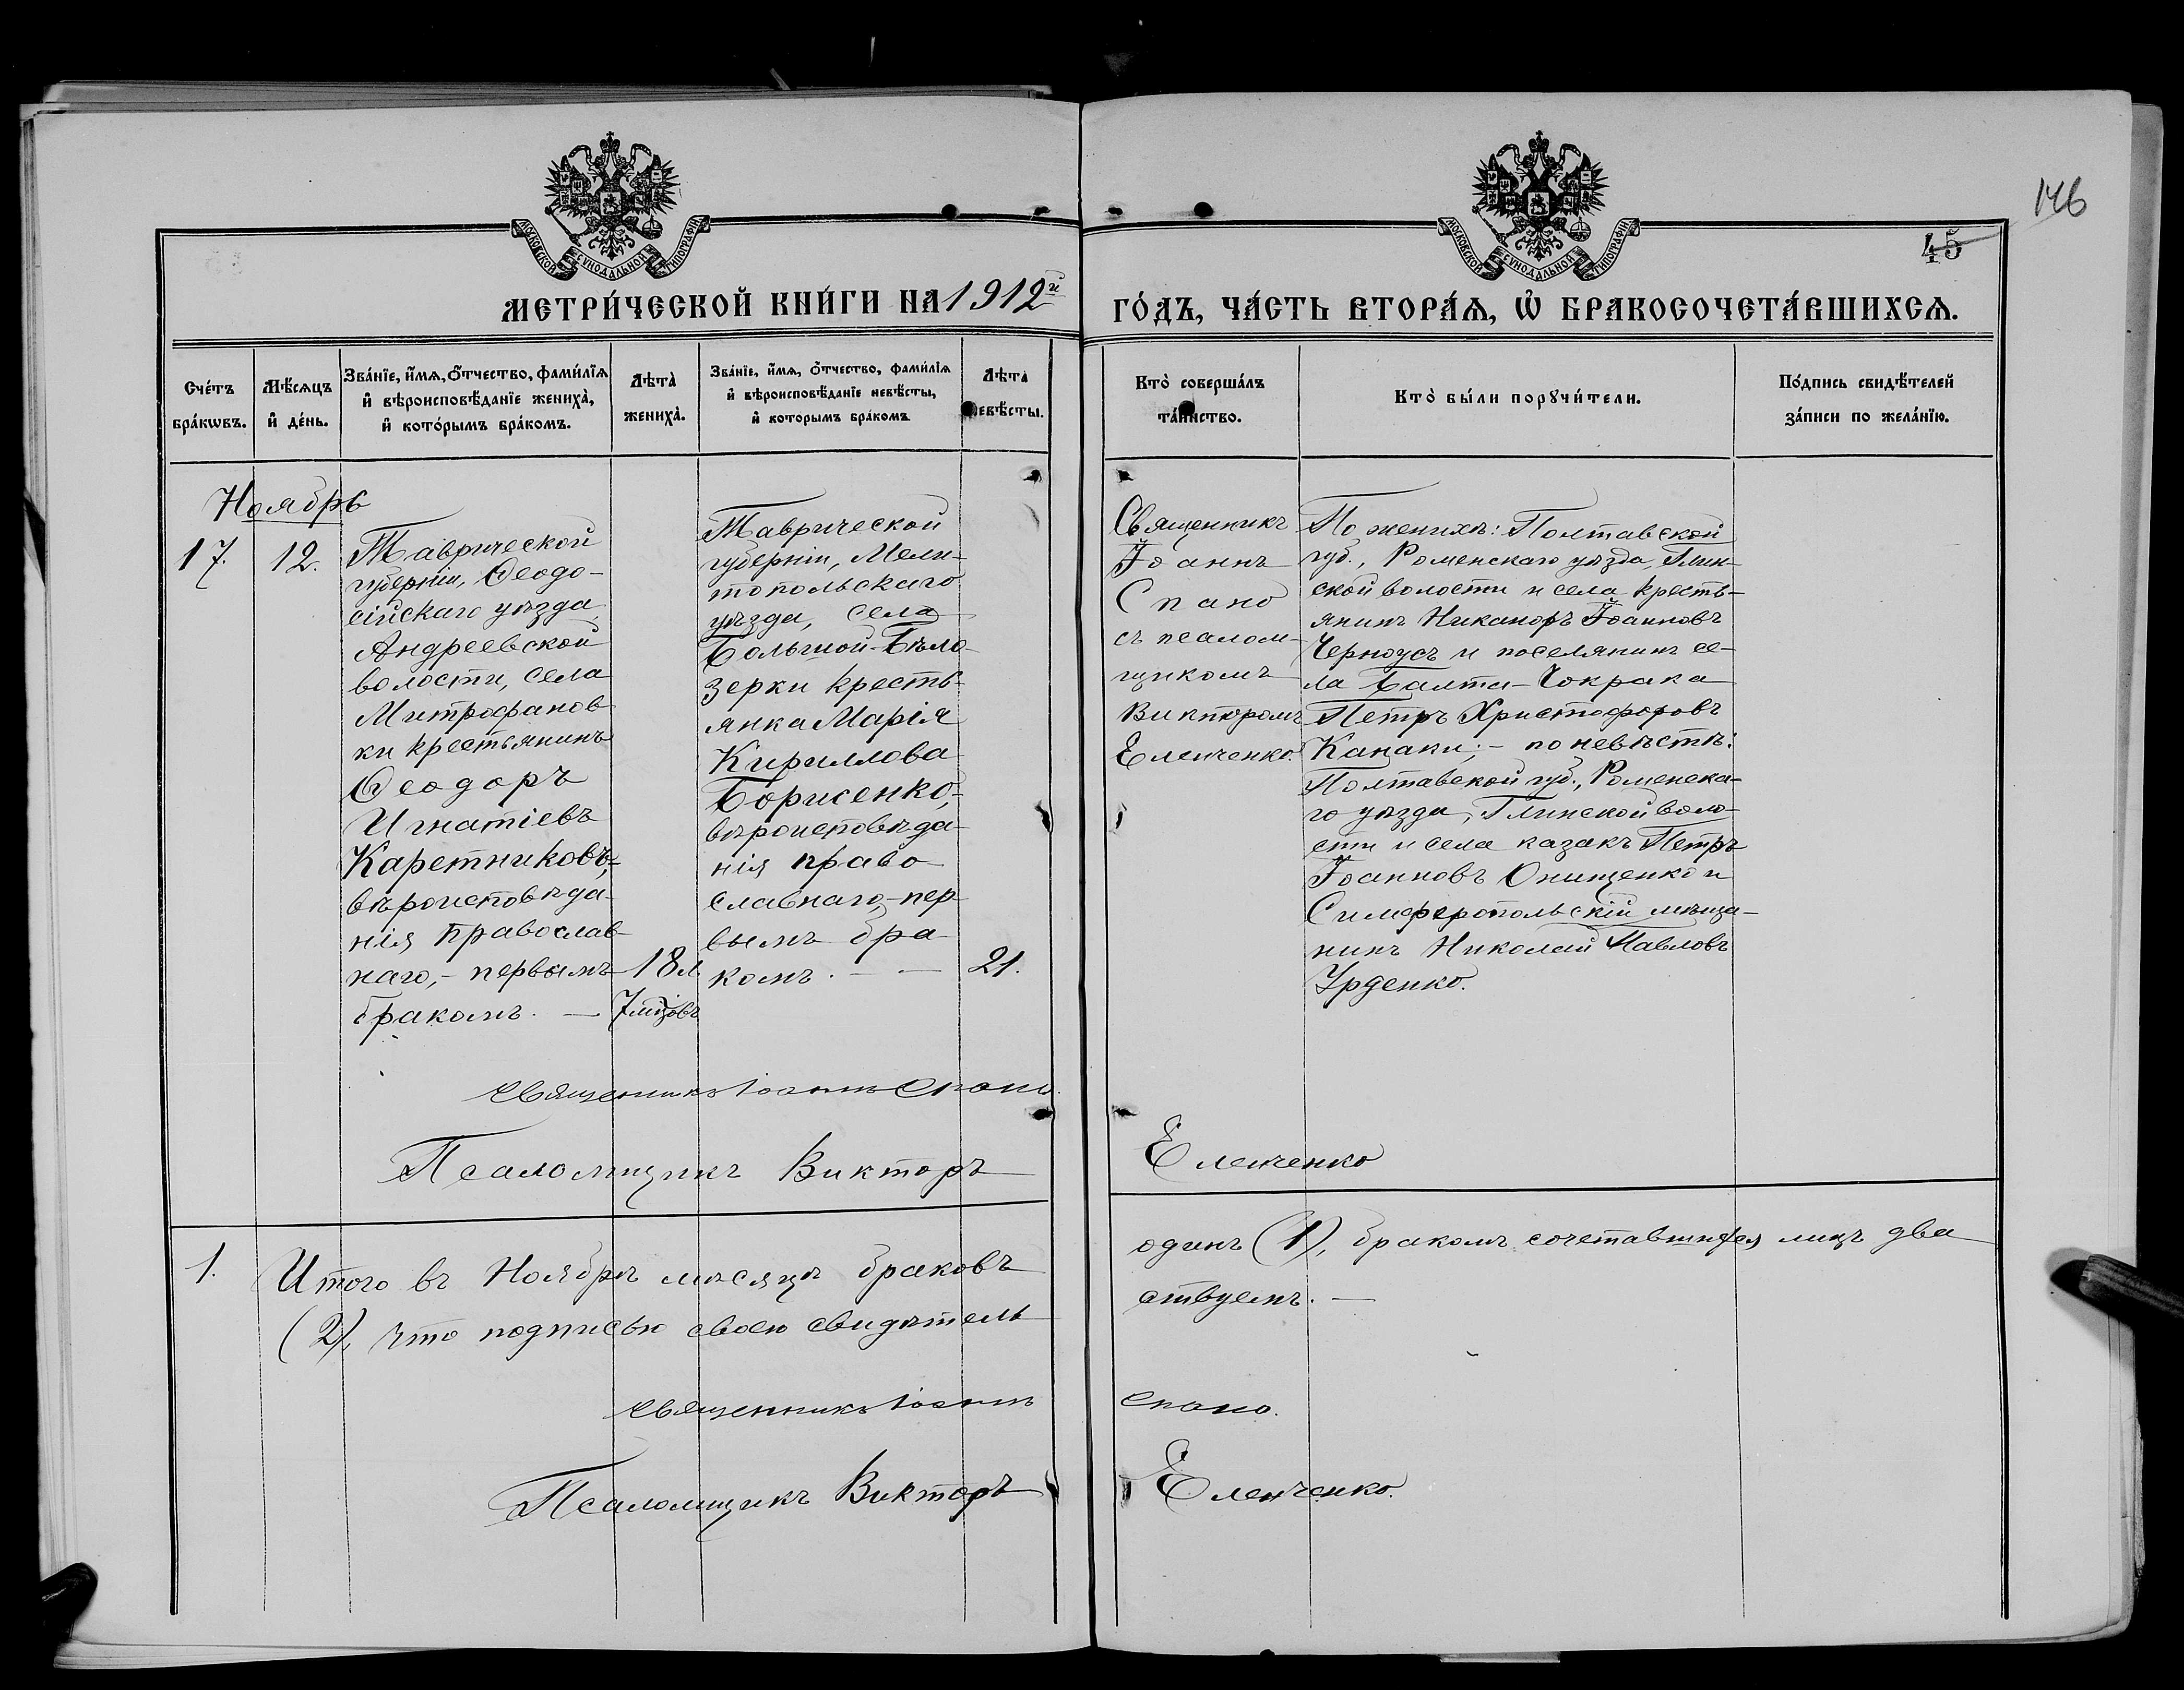 146
45
МОСКОВСКОЙ СѴНОДАЛЬНОЙ ТИПОГРАФІИ
МОСКОВСКОЙ СѴНОДАЛЬНОЙ ТИПОГРАФІИ
МЕТРИ́ЧЕСКОЙ КНИ́ГИ НА 1912й ГО́ДЪ, ЧА́СТЬ ВТОРА́Ѧ, Ѿ БРАКОСОЧЕТА́ВШИХСѦ.
Сче́тъ
бра́кѡвъ.
Мѣ́сѧцъ
и҆ де́нь.
Зва́нїе, и҆́мѧ, ѻ҆́тчество, фами́лїѧ
и҆ вѣроисповѣ́данїе жениха̀,
и҆ кото́рымъ бра́комъ.
Лѣта̀
жениха̀.
Зва́нїе, и҆́мѧ, ѻ҆́тчество, фами́лїѧ
и҆ вѣроисповѣ́данїе невѣ́сты,
и҆ которымъ бра́комъ
Лѣта̀
невѣ́сты.
Кто̀ соверша́лъ
та́инство.
Кто̀ бы́ли порꙋчи́тели.
По́дпись свидѣ́телей
за́писи по жела́нїю.
Ноябрь
17.
12.
Таврической
губерніи, Ѳеодо-
сійскаго уѣзда
Андреевской
волости, села
Митрофанов
ки крестьянинъ
Ѳеодоръ
Игнатіевъ
Каретниковъ,-
вѣроисповѣда-
нія православ-
наго,- первымъ
бракомъ. —
18 л.
7 міцовъ
Таврической
губерніи, Мели-
топольскаго
уѣзда, села
Большой-Бѣло-
зерки кресть-
янка Марія
Кириллова
Борисенко,-
вѣроисповѣда-
нія право
славнаго,- пер-
вымъ бра
комъ. — —
21.
Священникъ
Іоаннъ
Спано
съ псалом-
щикомъ
Викторомъ
Еленченко.
По женихѣ: Полтавской
губ., Роменскаго уѣзда, Глин-
ской волости и села кресть-
янинъ Никаноръ Іоанновъ
Черноусъ и поселянинъ се-
ла Балта-Чокрака
Петръ Христофоровъ
Канаки; - по невѣстѣ:
Полтавской губ., Роменска-
го уѣзда, Глинской воло-
сти и села казакъ Петръ
Іоанновъ Онищенко и
Симферопольскій мѣща-
нинъ Николай Павловъ
Урденко.
Священникъ Іоаннъ Спано.
Псаломщикъ Викторъ Еленченко
1.
Итого въ Ноябрѣ мѣсяцѣ браковъ одинъ (1), бракомъ сочетавшихся лицъ два
(2), что подписью своею свидѣтельствуемъ. —
Священникъ Іоаннъ Спано.
Псаломщикъ Викторъ Еленченко.